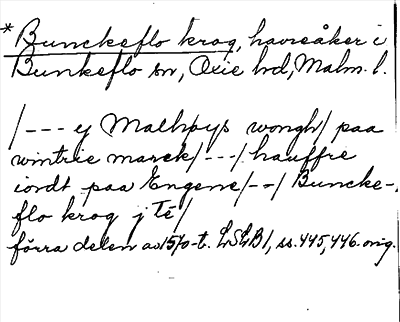 *Bunckeflo krog, havreåker i
Bunkeflo sn, Oxie hd, Malm. l.
/--- ej Malhøys wongh/ paa
wintrie marck/---/ hauffre
iordt paa Engene/--/ Buncke-
flo krog j Te/
förra delen av 1570-t. LSLB1, ss. 445, 446. orig.